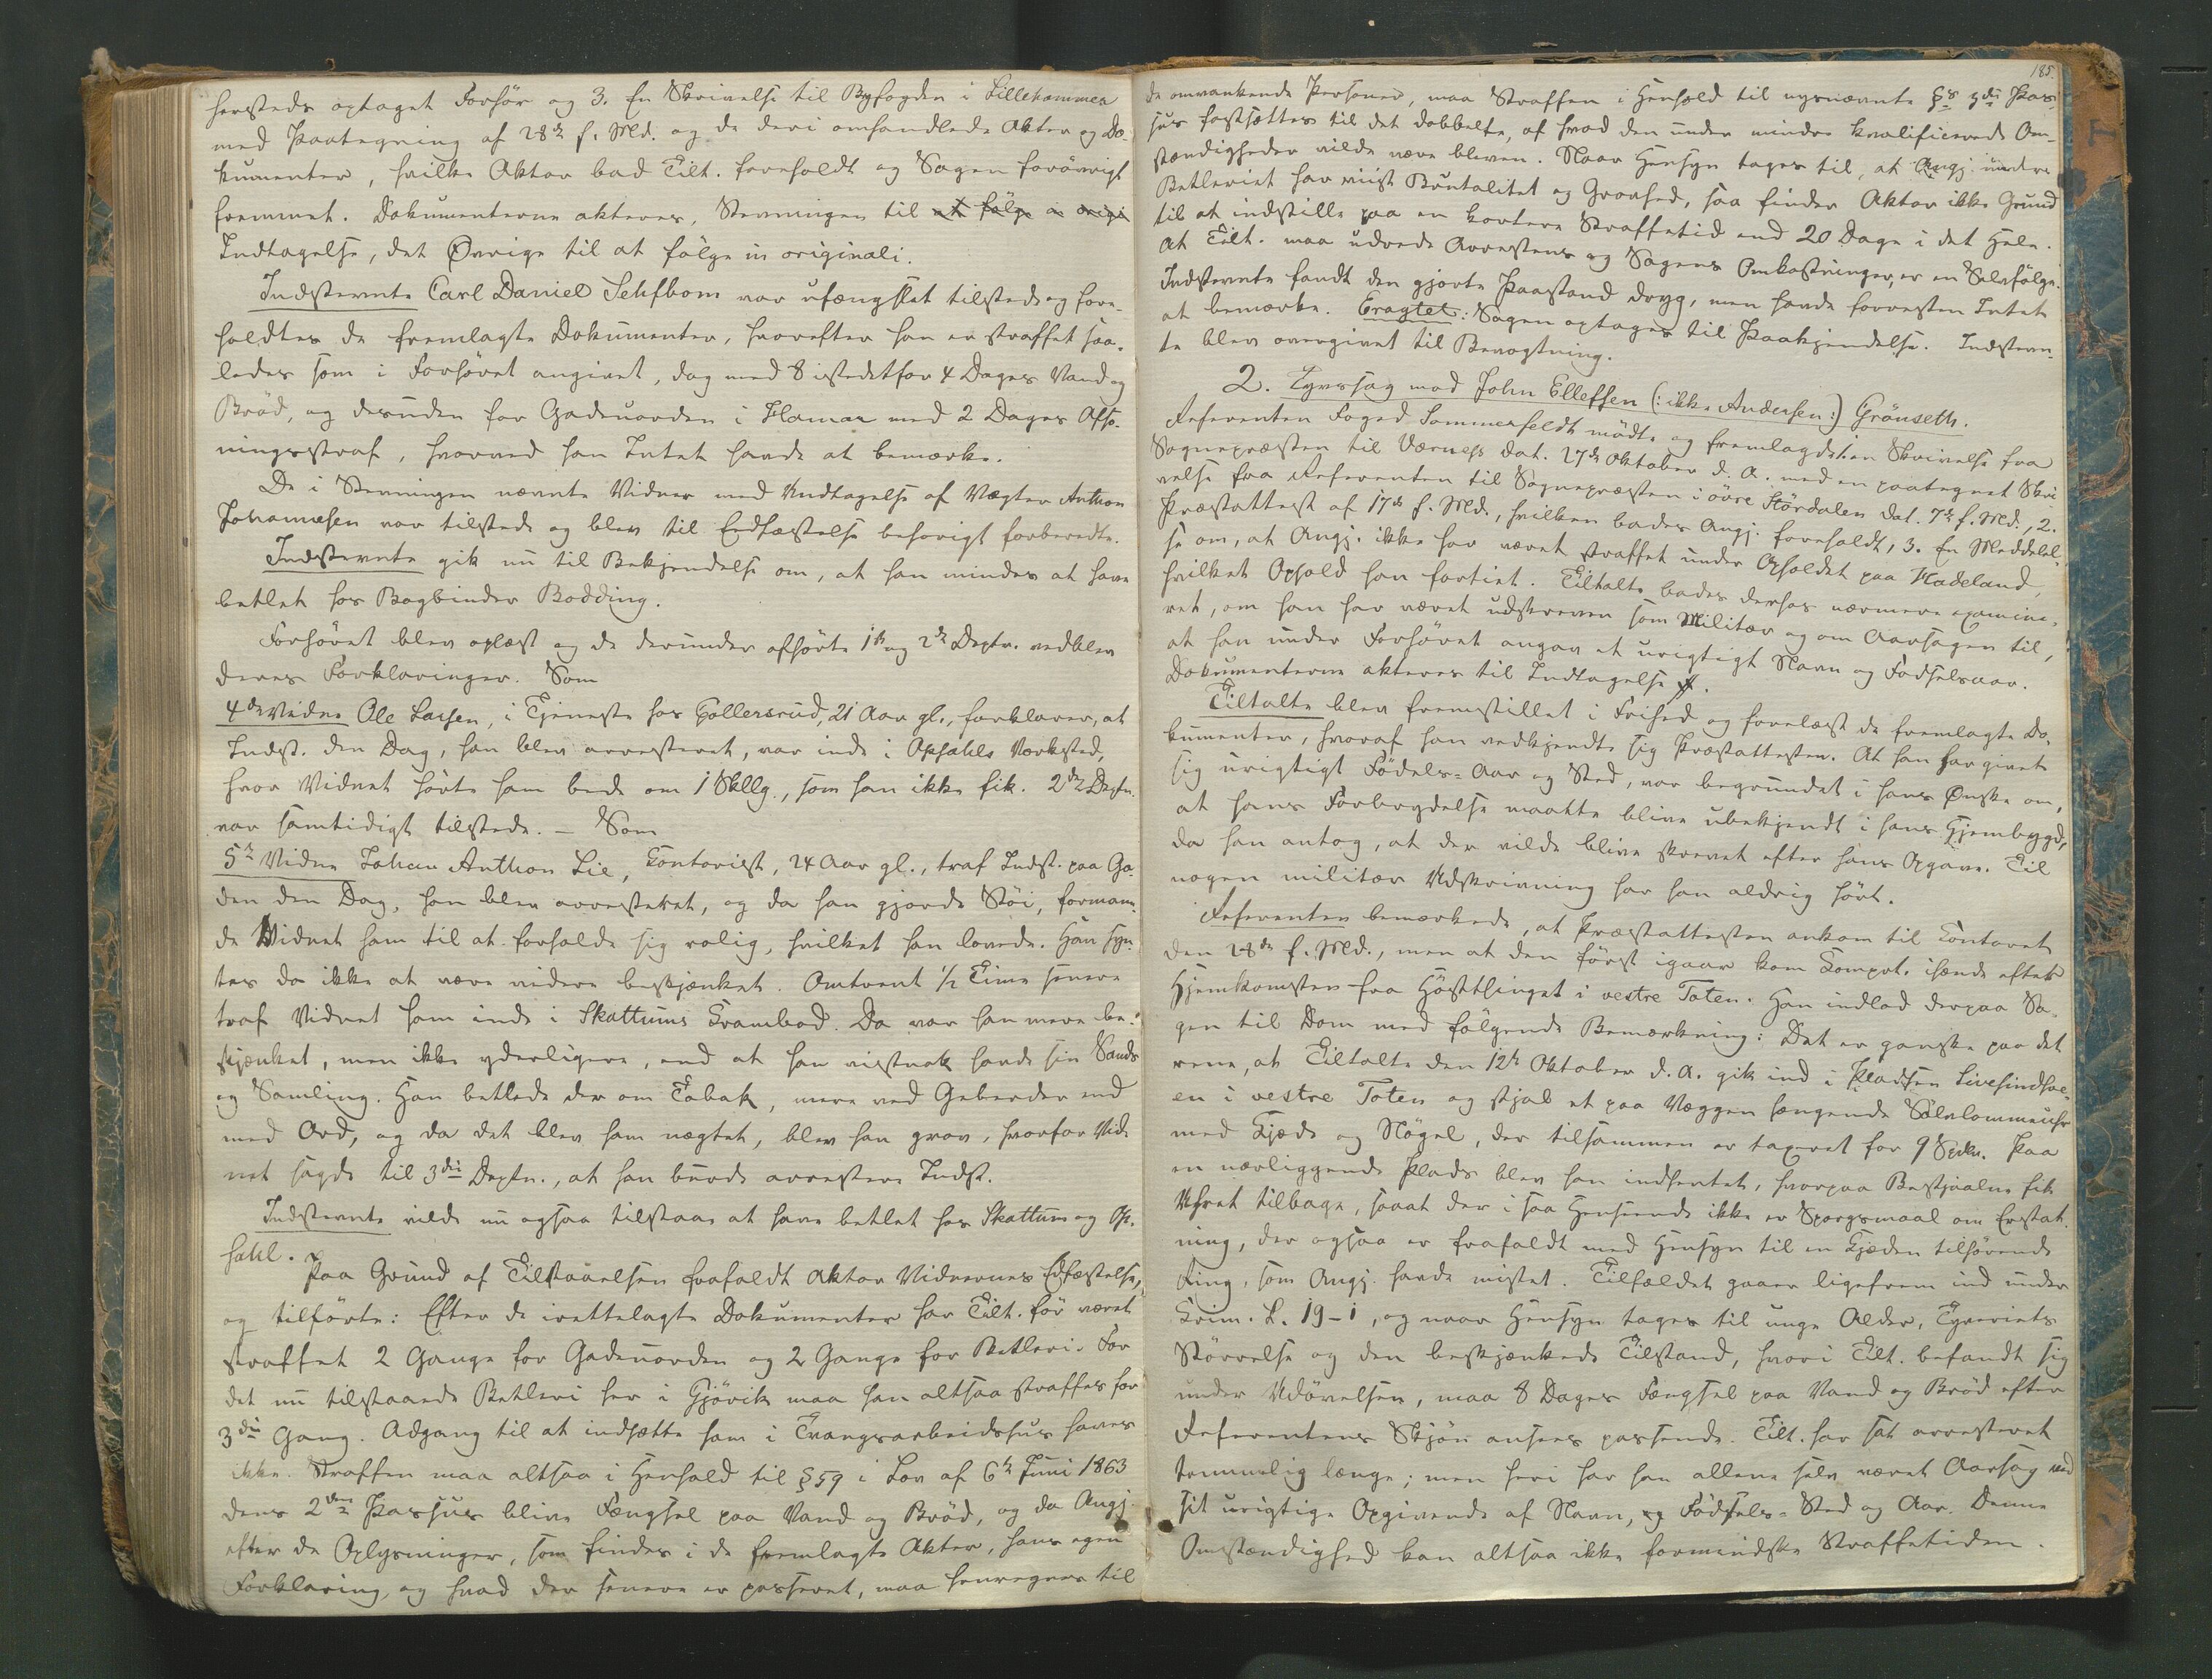 hersteds optaget Forhör og 3. En Skrivelse til Byfogden i Lillehammer
med Paategning af 28de f. Md. og de deri omhandlede Akter og Do-
kumenter, hvilke Aktor bad Tilt. foreholdt og Sagen forövrigt
fremmet. Dokumenterne akteres, Stevningen til at fölge in origi
Indtagelse, det Øvrige til at fölge in originali.
Indstevnte Carl Daniel Sehfbom var ufængslet tilstede og fore-
holdtes de fremlagte Dokumenter, hvorefter han er straffet saa-
ledes som i Forhöret angivet, dog med 8 istedetfor 4 Dages Vand og
Bröd, og desuden for Gadeuorden i Hamar med 2 Dages Afso-
ningsstraf, hvorved han Intet havde at bemærke.
De i Stevningen nævnte Vidner med Undtagelse af Vægter Anthon
Johannesen var tilstede og blev til Edfæstelse behörigt forberedte.
Indstevnte gik nu til Bekjendelse om, at han mindes at have
betlet hos Bogbinder Bodding.
Forhöret blev oplæst og de derunder afhörte 1ste og 2det Deptr. vedblev
deres Forklaringer. Som
4de Vidne Ole Larsen, i Tjeneste hos Gollersrud, 21 Aar gl., forklarer, at
Indst. den Dag, han blev arresteret, var inde i Opsahls Værksted,
hvor Vidnet hörte ham bede om 1 Skllg., som han ikke fik. 2det Deptr.
var samtidigt tilstede. – Som
5te Vidne Johan Anthon Lie, Contorist, 24 Aar gl., traf Indst. paa Ga-
den den Dag, han blev arresteret, og da han gjorde Stöi, forman-
de Vidnet ham til at forholde sig rolig, hvilket han lovede. Han syn-
tes da ikke at være videre beskjænket. Omtrent 1/2 Time senere
traf Vidnet ham inde i Skattums Krambod. Da var han mere be-
skjænket, men ikke yderligere, end at han vistnok havde sin Sands
og Samling. Han betlede der om Tobak, mere ved Geberder end
med Ord, og da det blev ham nægtet, blev han grov, hvorfor Vid-
net sagde til 3die Deptn., at han burde arrestere Indst.
Indstevnte vilde nu ogsaa tilstaa at have betlet hos Skattum og Op-
sahl.
Paa Grund af Tilstaaelsen frafaldt Aktor Vidnernes Edfæstelse,
og tilförte: Efter de irettelagte Dokumenter har Tilt. för været
straffet 2 Gange for Gadeuorden og 2 Gange for Betleri. For
det nu tilstaaede Betleri her i Gjövik maa han altsaa straffes for
3die Gang. Adgang til at indsætte ham i Tvangsarbeidshus haves
ikke. Straffen maa altsaa i Henhold til § 59 i Lov af 6te Juni 1863
dens 2den Passus blive Fængsel paa Vand og Bröd, og da Angj.
efter de Oplysninger, som findes i de fremlagte Akter, hans egen
Forklaring, og hvad der senere er passeret, maa henregnes til
185.
de omvankende Personer, maa Straffen i Henhold til nysnævnte §s 3die Pas-
sus fastsættes til det dobbelte, af hvad den under mindre kvalificerede Om-
stændigheder vilde være bleven. Naar Hensyn tages til, at Angj. under
Betleriet har viist Brutalitet og Grovhed, saa finder Aktor ikke Grund
til at indstille paa en kortere Straffetid end 20 Dage i det Hele.
At Tilt. maa udrede Arrestens og Sagens Omkostninger, er en Selvfölge.
Indstevnte fandt den gjorte Paastand dryg, men havde forresten Intet
at bemærke. Eragtet: Sagen optages til Paakjendelse. Indstevn-
te blev overgivet til Bevogtning.
2. Tyvssag mod John Ellefsen (: ikke Andersen :) Grönseth.
Referenten Foged Sommerfeldt mödte og fremlagde: 1. en Skrivelse fra
Sognepræsten til Værnes dat. 27de Oktober d. A. med en paategnet Skri-
velse fra Referenten til Sognepræsten i övre Stördalen dat. 7de f. Md., 2.
Præstattest af 17de f. Md., hvilken bades Angj. foreholdt, 3. En Meddelel-
se om, at Angj. ikke har været straffet under Opholdet paa Hadeland,
hvilket Ophold han fortiet. Tiltalte bades derhos nærmere examine-
ret, om han har været udskreven som Militær og om Aarsagen til,
at han under Forhöret angav et urigtigt Navn og Födselsaar.
Dokumenterne akteres til Indtagelse.
Tiltalte blev fremstillet i Frihed og forelæst de fremlagte Do-
kumenter, hvoraf han vedkjendte sig Præstattesten. At han har givet
sig urigtigt Födels-Aar og Sted, var begrundet i hans Ønske om,
at hans Forbrydelse maatte blive ubekjendt i hans Hjembygd,
da han antog, at der vilde blive skrevet efter hans Opgave. Til
nogen militær Udskrivning har han aldrig hört.
Referenten bemærkede, at Præstattesten ankom til Contoret
den 28de f. Md., men at den först igaar kom Compt. ihænde efter
Hjemkomsten fra Hösttinget i vestre Toten. Han indlod derpaa Sa-
gen til Dom med fölgende Bemærkning: Det er ganske paa det
rene, at Tiltalte den 12te Oktober d. A. gik ind i Pladsen Livesindhæl-
en i vestre Toten og stjal et paa Væggen hængende Sölvlommeuhr
med Kjæde og Nögel, der tilsammen er taxeret for 9 Spdlr. Paa
en nærliggende Plads blev han indhentet, hvorpaa Bestjaalne fik
Uhret tilbage, saaat der i saa Henseende ikke er Spörgsmaal om Erstat-
ning, der ogsaa er frafaldt med Hensyn til en Kjæden tilhörende
Ring, som Angj. havde mistet. Tilfældet gaaer ligefrem ind under
Krim. L. 19–1, og naar Hensyn tages til unge Alder, Tyveriets
Störrelse og den beskjænkede Tilstand, hvori Tilt. befandt sig
under Udövelsen, maa 8 Dages Fængsel paa Vand og Bröd efter
Referentens Skjön ansees passende. Tilt. har sat arresteret
temmelig længe; men heri har han allene selv været Aarsag ved
sit urigtige Opgivende af Navn, og Födsels-Sted og Aar. Denne
Omstændighed kan altsaa ikke formindske Straffetiden.